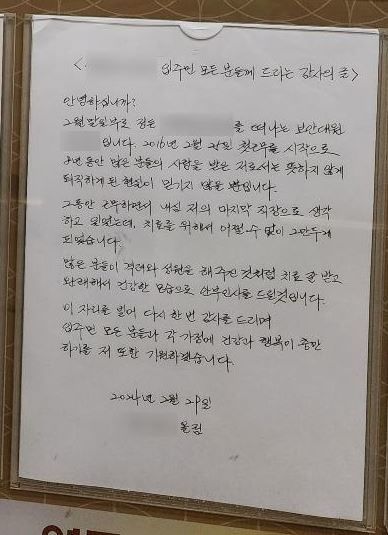 < 입주민 모든 분들께 드리는 감사의 글>
안녕하십니까?
2월 말일부로 정든 를 떠나는 보안대원
입니다. 2016년 2월 25일 첫근무를 시작으로
8년 동안 많은 분들의 사랑을 받은 저로서는 뜻하지 않게
퇴직하게 된 현실이 믿기지 않을 뿐입니다.
그동안 근무하면서 내심 저의 마지막 직장으로 생각
하고 있었는데, 치료를 위해서 어쩔 수 없이 그만두게
되었습니다.
많은 분들이 격려와 성원을 해 주신 것처럼 치료 잘 받고
완쾌해서 건강한 모습으로 안부인사를 드릴것입니다.
이 자리를 빌어 다시 한 번 감사를 드리며
입주민 모든 분들과 각 가정에 건강과 행복이 충만
하기를 저 또한 기원하겠습니다.
2024년 2월 29일
올림